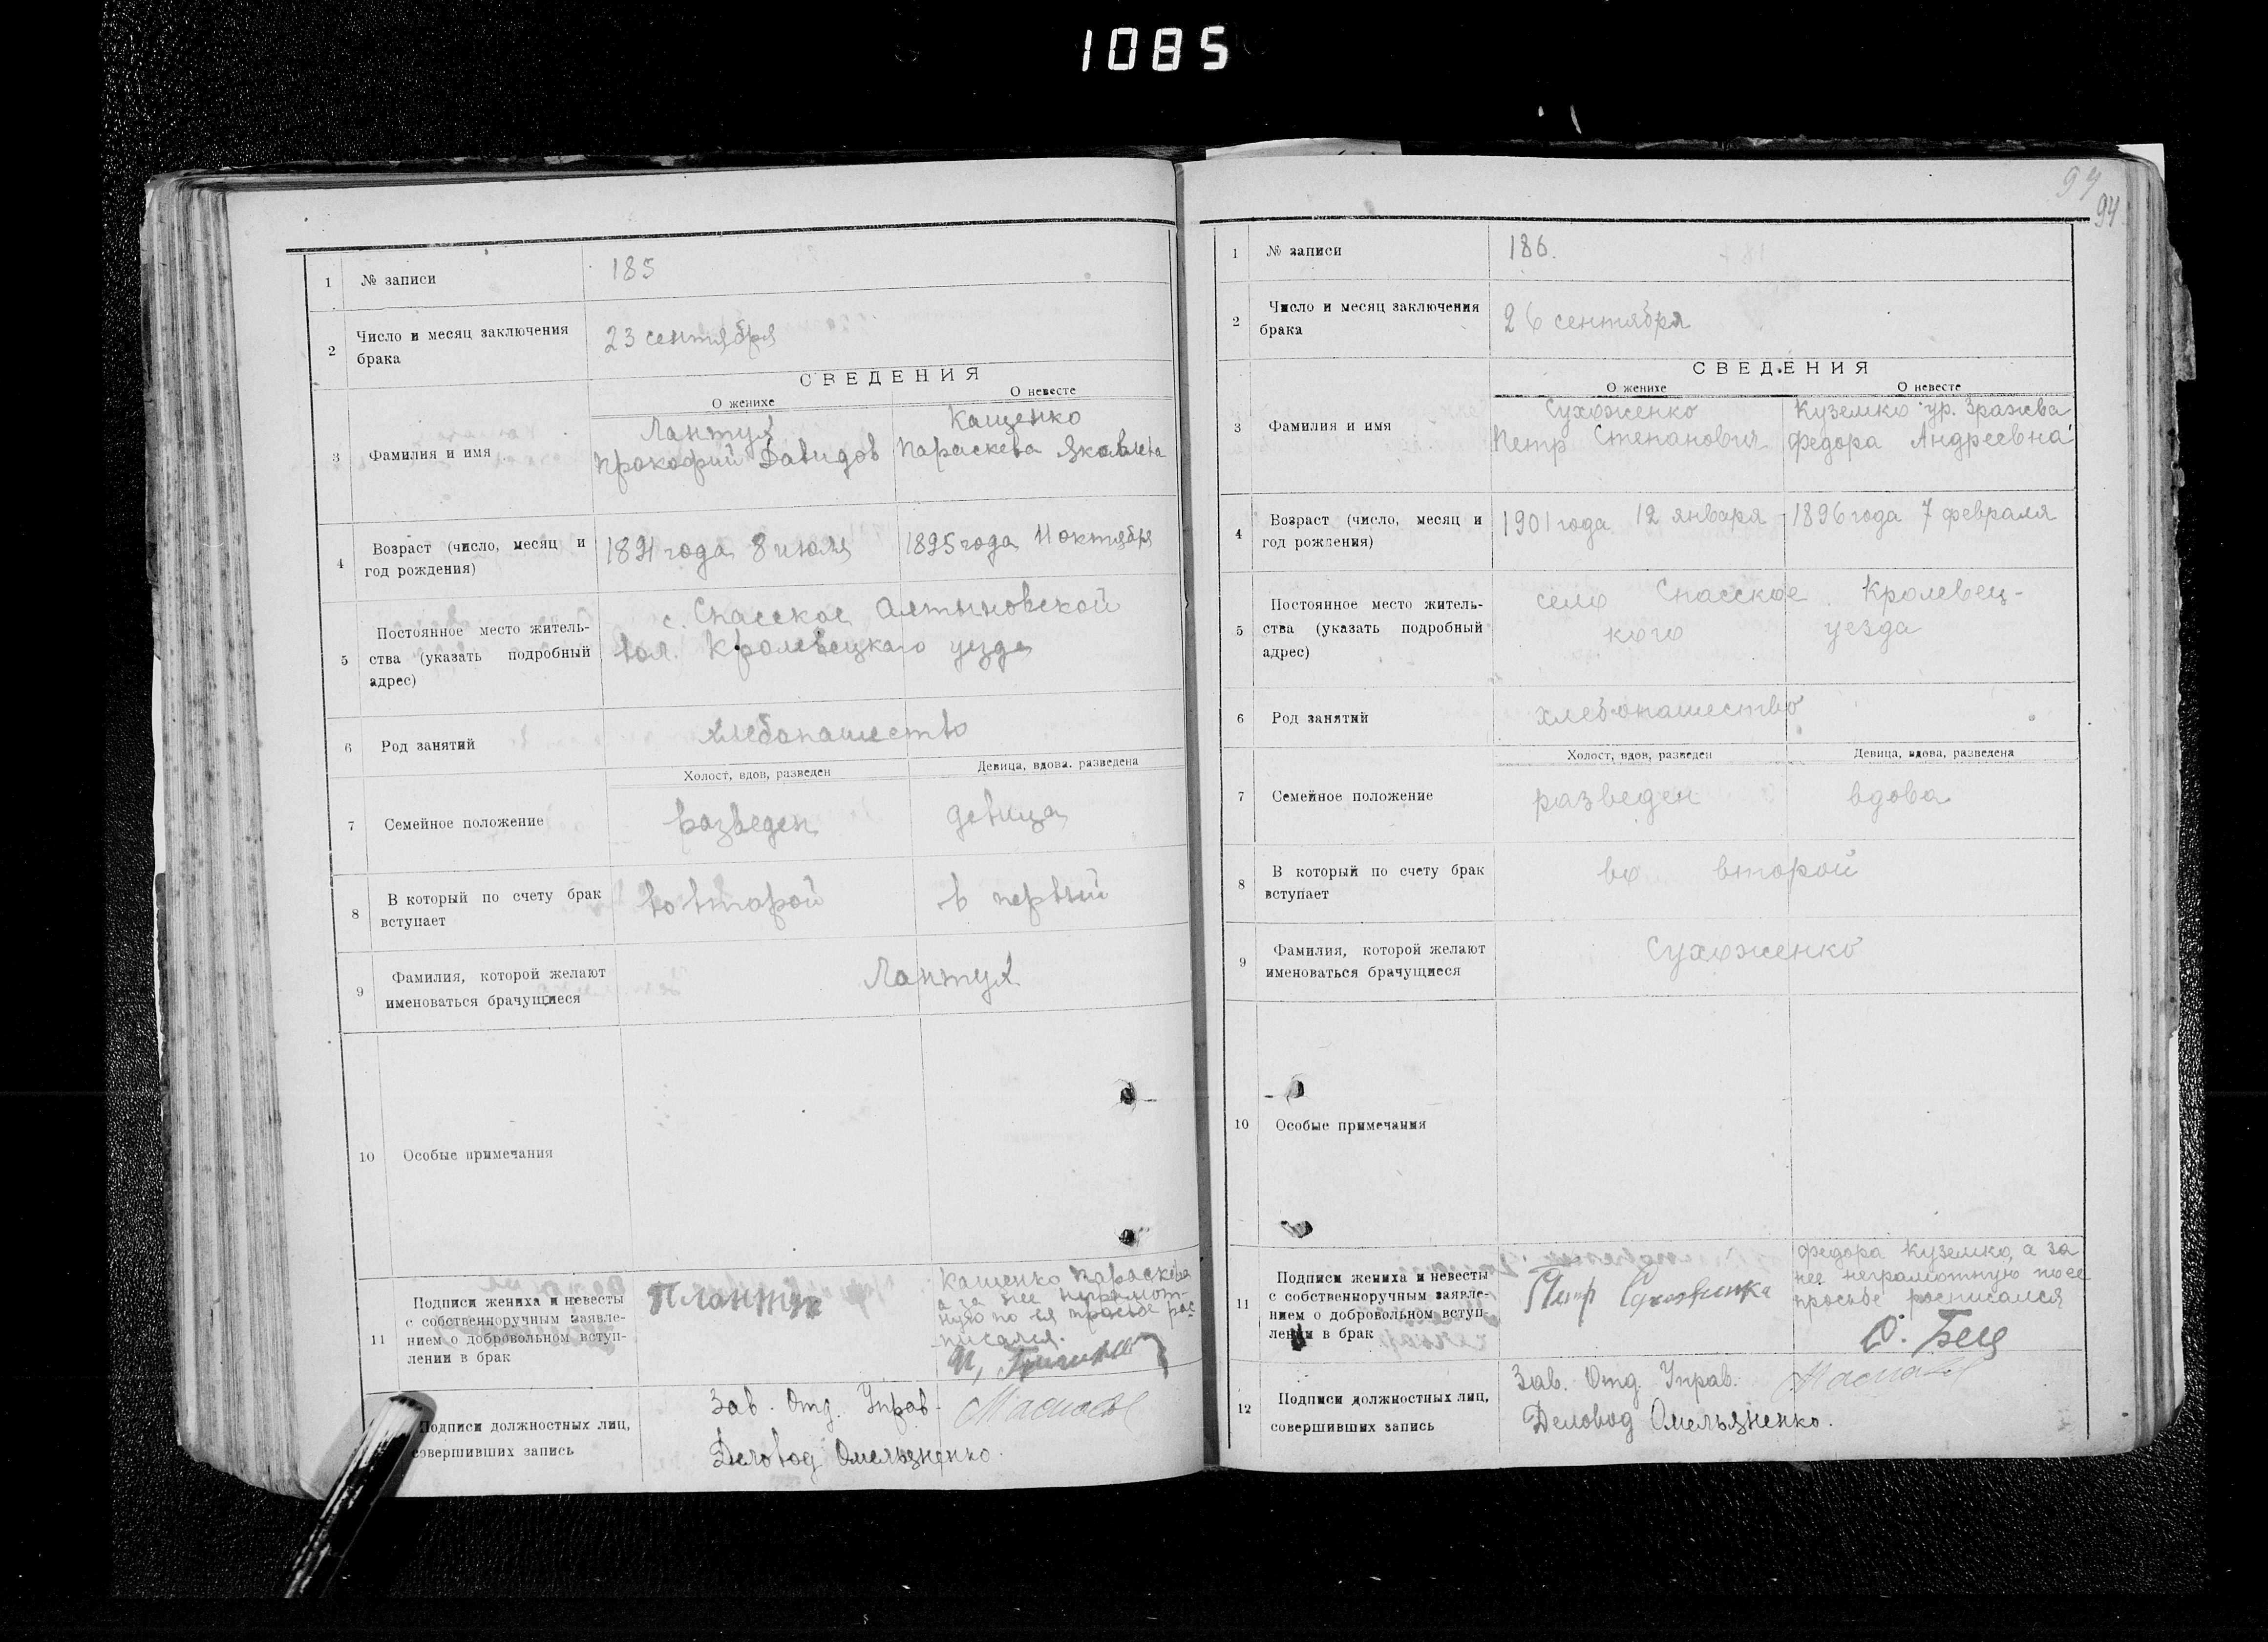 1085
1 № записи 185
2 Число и месяц заключения
брака
23 сентября
СВЕДЕНИЯ
О женихе О невесте
3 Фамилия и имя
Лантух
Прокофий Давидов
Кащенко
Параскева Яковлева
4 Возраст (число, месяц и
год рождения)
1891 года 8 июля 1895 года 11 октября
5 Постоянное место житель-
ства (указать подробный
адрес)
с. Спасское Алтыновской
вол. Кролевецкаго уезда
6 Род занятий хлебопашество
Холост, вдов, разведен Девица, вдова. разведена
7 Семейное положение разведен девица
8 В который по счету брак
вступает
во второй в первый
9 Фамилия, которой желают
именоваться брачущиеся
Лантух
10 Особые примечания
11 Подписи жениха и невесты
с собственноручным заявле-
нием о добровольном вступ-
лении в брак
ПЛантух
Кащенко Параскева
а за нее неграмот-
ную по ея просьбе рас-
писался.
Подписи должностных лиц,
совершивших запись
Зав. Отд. Управ.
Деловод Омельяненко.
94
94
1 № записи 186.
2 Число и месяц заключения
брака
26 сентября
СВЕДЕНИЯ
О женихе О невесте
3 Фамилия и имя
Сухоженко
Петр Степанович
Куземко ур. Зражва
Федора Андреевна
4 Возраст (число, месяц и
год рождения)
1901 года 12 января 1896 года 7 февраля
5 Постоянное место житель-
ства (указать подробный
адрес)
село Спасское Кролевец-
кого уезда
6 Род занятий хлебопашество
Холост, вдов, разведен Девица, вдова, разведена
7 Семейное положение разведен вдова
8 В который по счету брак
вступает
во второй
9 Фамилия, которой желают
именоваться брачущиеся
Сухоженко
10 Особые примечания
11 Подписи жениха и невесты
с собственноручным заявле-
нием о добровольном вступ-
лении в брак
Петр
Федора Куземко, а за
нее неграмотную по ее
просьбе росписался
О. Бец
12 Подписи должностных лиц,
совершивших запись
Зав. Отд. Управ.
Деловод Омельяненко.